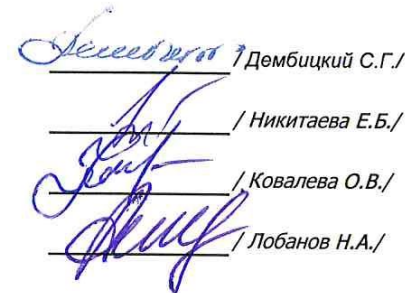 / Дембицкий С.Г./
/ Никитаева Е.Б./
/ Ковалева О.В./
/ Лобанов Н.А./